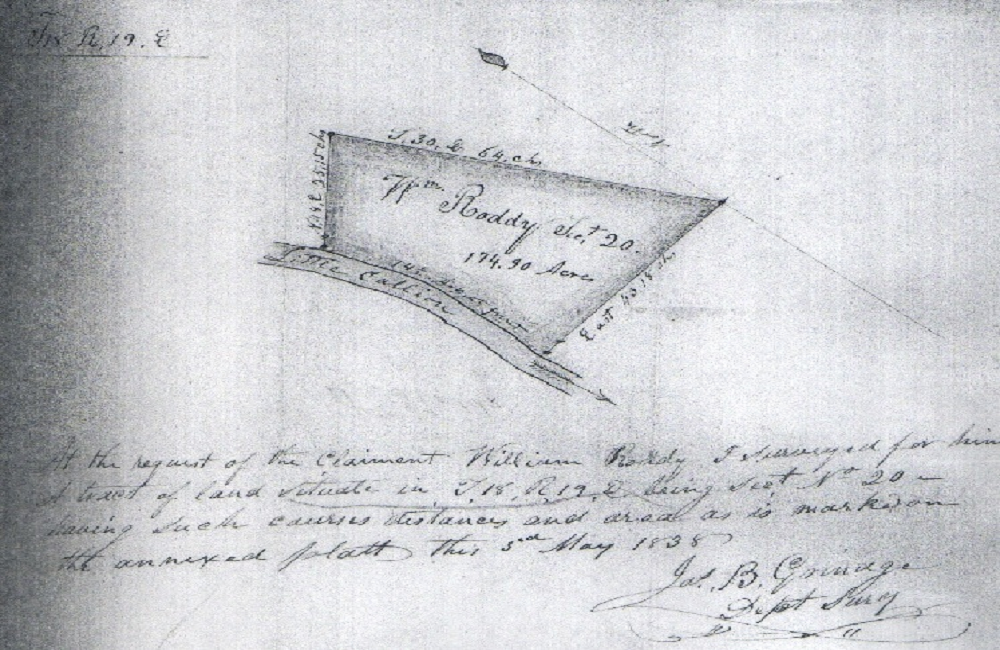 R. 19. E
S. 30. E 64. chs
Wm. Roddy Sect 20.
174.90 Acres
East
Little Callion
At the request of the Claiment William Roddy I surveyed for him
A tract of land Situate in T. 18, R 19. E being Sect No 20 =
having Such courses distances and area as is marked on
the annexed platt this 5d May 1838
Jas. B. Grinage
Dept Surv